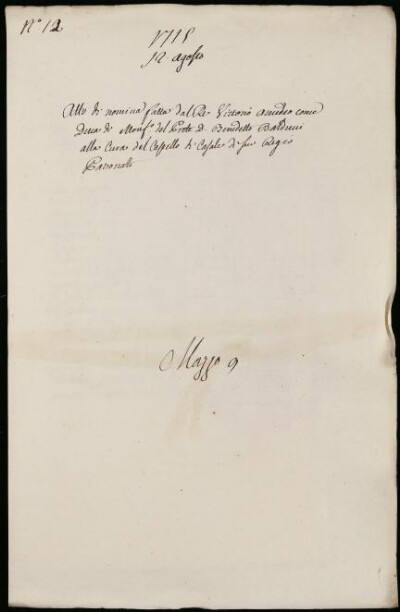 N° 12
1715
12 agosto
Atto di nomina fatta dal Re Vittorio Amedeo come
Duca di Monf.° del Prete D. Benedetto
alla Cura del Castello di Casale di suo Regio
Patronato
Mazzo 9